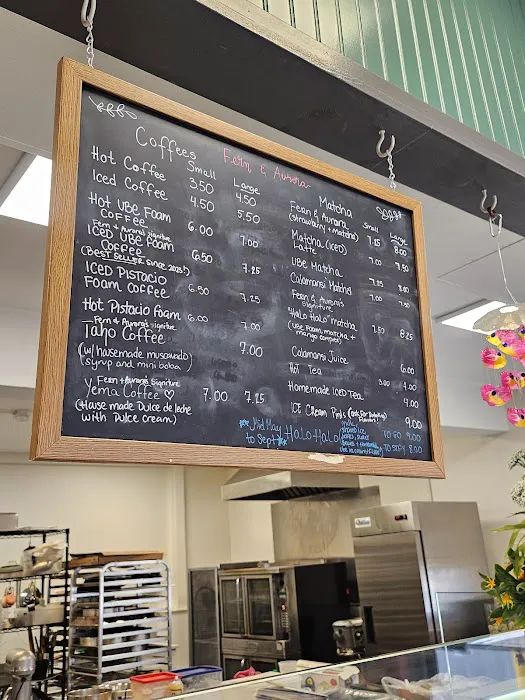 Fern & Aurora
Coffees
Small Large
Hot Coffee 3.50 4.50
Iced Coffee 4.50 5.50
Hot UBE Foam
COFFEE 6.00 7.00
Fern & Aurora's signature
ICED UBE Foam
Coffee 6.50 7.25
(BEST SELLER since 2023!)
ICED PISTACIO
Foam Coffee 6.50 7.25
Hot Pistacio Foam 6.00 7.00
Fern & Aurora's signature
Taho Coffee 7.00
(w/ hasemade muscavado
syrup and mini boba)
Fern & Aurora's Signiture
Yema Coffee ♡ 7.00 7.25
(House made Dulce de leche
with Dulce cream)
Matcha
Small Large
Fern & Aurora
(Strawberry + Matcha) 7.25 8.00
Matcha (iced)
Latte 7.00 7.50
UBE Matcha
Calamansi Matcha 7.00
Fern & Aurora's
Signiture
"HALO HALO" matcha 7.50 8.25
(UBE foam, matcha +
mango compote)
Calamansi Juice 6.00
Hot Tea 3.00 4.00
Homemade Iced Tea 4.00
ICE Cream Pints 9.00
Mid May
to Sept
HALO HALO
TO GO 9.00
TO STAY 8.00